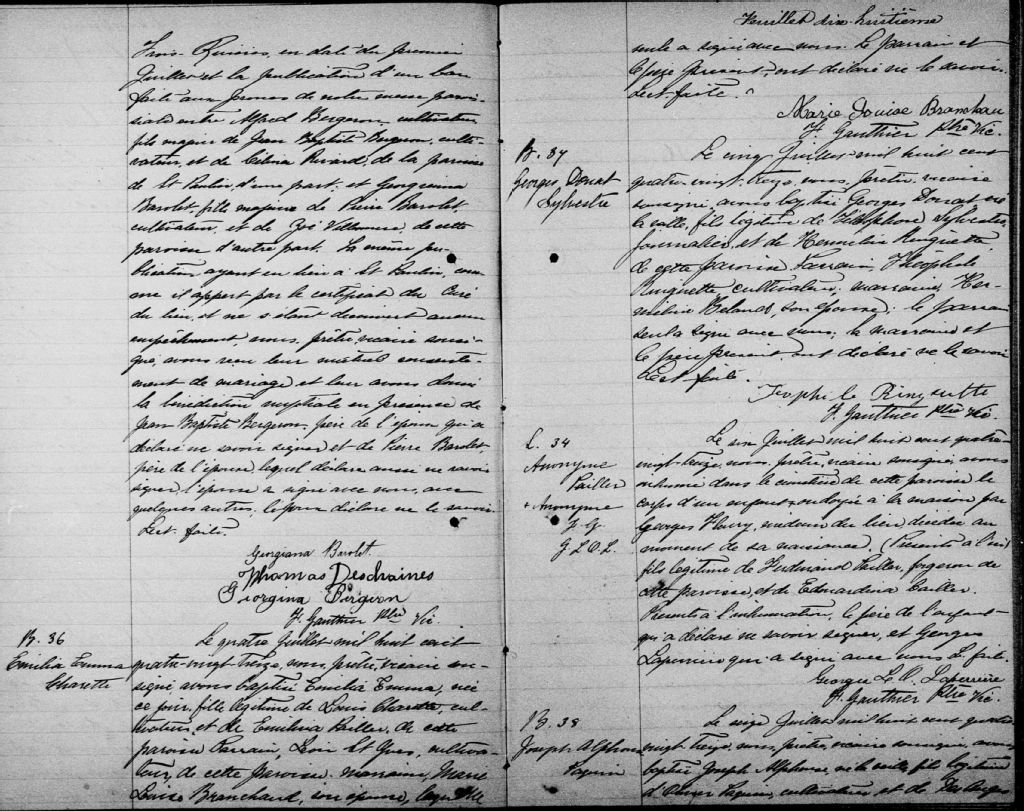 Trois Rivières, en date du premier
Juillet et la publication d'un ban
faite aux prones de notre messe parois-
siale entre Alfred Bergeron, cultivateur
fils majeur de Jean Baptiste Bergeron, culti-
vateur, et de Célina Rivard, de la paroisse
de St Paulin, d'une part; et Georgianna
Barolet, fille majeure de Pierre Barolet,
cultivateur, et de Zoé Villemure, de cette
paroisse d'autre part. La même pu-
blication ayant eu lieu à St Paulin, com-
me il appert par le certificat du Curé
du lieu, et ne s'étant découvert aucun
empêchement nous, prêtre, vicaire soussi-
gné, avons reçu leur mutuel consente-
ment de mariage et leur avons donné
la bénédiction nuptiale en présence de
Jean Baptiste Bergeron, père de l'époux qui a
déclaré ne savoir signer et de Pierre Barolet,
père de l'épouse, lequel déclare aussi ne savoir
signer, l'épouse a signé avec nous, avec
quelques autres. L'époux déclare ne le savoir.
Lect. faite.
Georgiana Barolet.
Thomas Deschaines
Giorgina Bergeron
H. Gauthier Ptre Vic.
B. 36
Emilia Emma
Charette
Le quatre Juillet mil huit cent
quatre-vingt treize, nous, prêtre, vicaire sous-
signé avons baptisé Emilia Emma, née
ce jour, fille légitime de Louis Charette, cul-
tivateur, et de Emilina Pailler, de cette
paroisse. Parrain, Léon St Yves, cultiva-
teur, de cette paroisse. marraine, Marie
Louise Branchaud, son épouse, laquelle
Feuillet dix-huitième
seule a signé avec nous. Le parrain et
le père présent, ont déclaré ne le savoir.
Lect. faite.
Marie Louise Branchau
H. Gauthier Ptre Vic.
B. 37
Georges Donat
Sylvestre
Le cinq Juillet mil huit cent
quatre-vingt-treize, nous, prêtre, vicaire
soussigné, avons baptisé Georges Donat né
la veille, fils légitime de Sylvestre,
journalier, et de Herméline Ringuette
de cette paroisse. Parrain, Théophile
Ringuette cultivateur; marraine, Her-
méline Beland, son épouse; le parrain
seul a signé avec nous; la marraine et
le père présent ont déclaré ne le savoir
Lect. faite.
Teophile Ringuette
H. Gauthier Ptre Vic.
S. 34
Anonyme
Pailler
+ Anonyme
P. G.
G. L. O. L.
Le six Juillet mil huit cent quatre-
vingt-treize, nous, prêtre, vicaire soussigné, avons
inhumé dans le cimetière de cette paroisse le
corps d'un enfant ondoyé à la maison par
Georges Fleury, medecin du lieu décédé au
moment de sa naissance,
fils légitime de Ferdinand Pailler, forgeron de
cette paroisse, et de Edouardina Pailler.
Présents à l'inhumation, le père de l'enfant
qui a déclaré ne savoir signer, et Georges
Laperrière qui a signé avec nous L. faite.
Georges L. O. Laperrière
H. Gauthier Ptre Vic.
B. 38
Joseph Alphonse
Paquin
Le seize Juillet mil huit cent quatre-
vingt-treize, nous, prêtre, vicaire soussigné, avons
baptisé Joseph Alphonse, né la veille, fils légitime
d' Paquin, cultivateur, et de